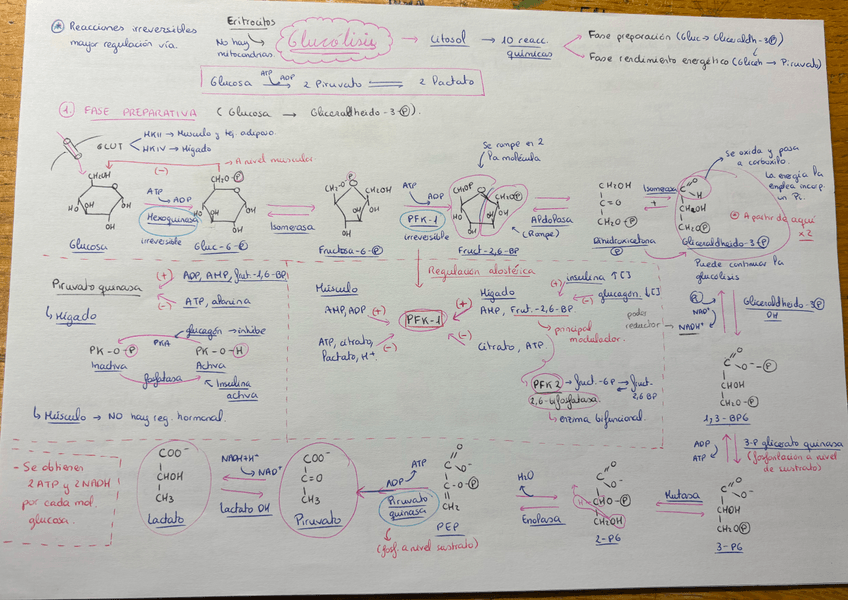 * Reacciones irreversibles
mayor regulación vía.
Eritrocitos
No hay
mitocondrias.
Glucólisis → Citosol → 10 reacc.
químicas
Fase preparación (Gluc → Gliceraldh-3-P)
Fase rendimiento energético (Gliceh → Piruvato)
Glucosa ATP ADP 2 Piruvato 2 Lactato
1. FASE PREPARATIVA (Glucosa → Gliceraldheido-3-P).
GLUT
HKII → Músculo y tej. adiposo.
HKIV → Hígado
(-)
→ A nivel muscular
CH2OH
OH
HO
OH
OH
Glucosa
ATP
ADP
Hexoquinasa
irreversible
CH2O-P
OH
HO
OH
OH
Gluc-6-P
Isomerasa
CH2O-P
CH2OH
HO
OH
OH
Fructosa-6-P
ATP
ADP
PFK-1
irreversible
Se rompe en 2
la molécula
CH2OP
CH2OP
HO
OH
OH
Fruct-2,6-BP
Aldolasa
(Rompe)
CH2OH
C=O
CH2O-P
Dihidroxicetona
P
Isomerasa
+
C=O
H
CHOH
CH2O-P
Gliceraldheido-3-P
Puede continuar la
glucólisis
Se oxida y pasa
a carboxilo.
La energía la
emplea incorp.
un Pi.
* A partir de aquí
x2
Piruvato quinasa
(+) ADP, AMP, fruct-1,6-BP
(-) ATP, alanina
↳ Hígado
glucagón → inhibe
PKA
PK-O-P
Inactiva
PK-O-H
Activa
fosfatasa
Insulina
activa
↳ Músculo → NO hay reg. hormonal.
Regulación alostérica
Músculo
AMP, ADP (+)
ATP, citrato,
lactato, H+ (-)
PFK-1
Hígado
(+) AMP, Fruct-2,6-BP
(+) insulina ↑[]
(-) glucagón ↓[]
principal
modulador.
(-) citrato, ATP
PFK2 → fruct-6P fruct-
2,6 BP
2,6-bifosfatasa
↳ enzima bifuncional.
poder
reductor
Pi
NAD+
NADH+
Gliceraldheido-3P
DH
C=O
O-P
CHOH
CH2O-P
1,3-BPG
ADP
ATP
3-P glicerato quinasa
(fosforilación a nivel
de sustrato)
C=O
O-
CHOH
CH2OP
3-PG
Mutasa
C=O
O-
H
CHO-P
CH2OH
2-PG
H2O
Enolasa
C=O
O-
C-O-P
CH2
PEP
ATP
ADP
Piruvato
quinasa
(fosf. a nivel sustrato)
COO-
C=O
CH3
Piruvato
NADH+H+
NAD+
Lactato DH
COO-
CHOH
CH3
Lactato
- Se obtienen
2 ATP y 2 NADH
por cada mol.
glucosa.